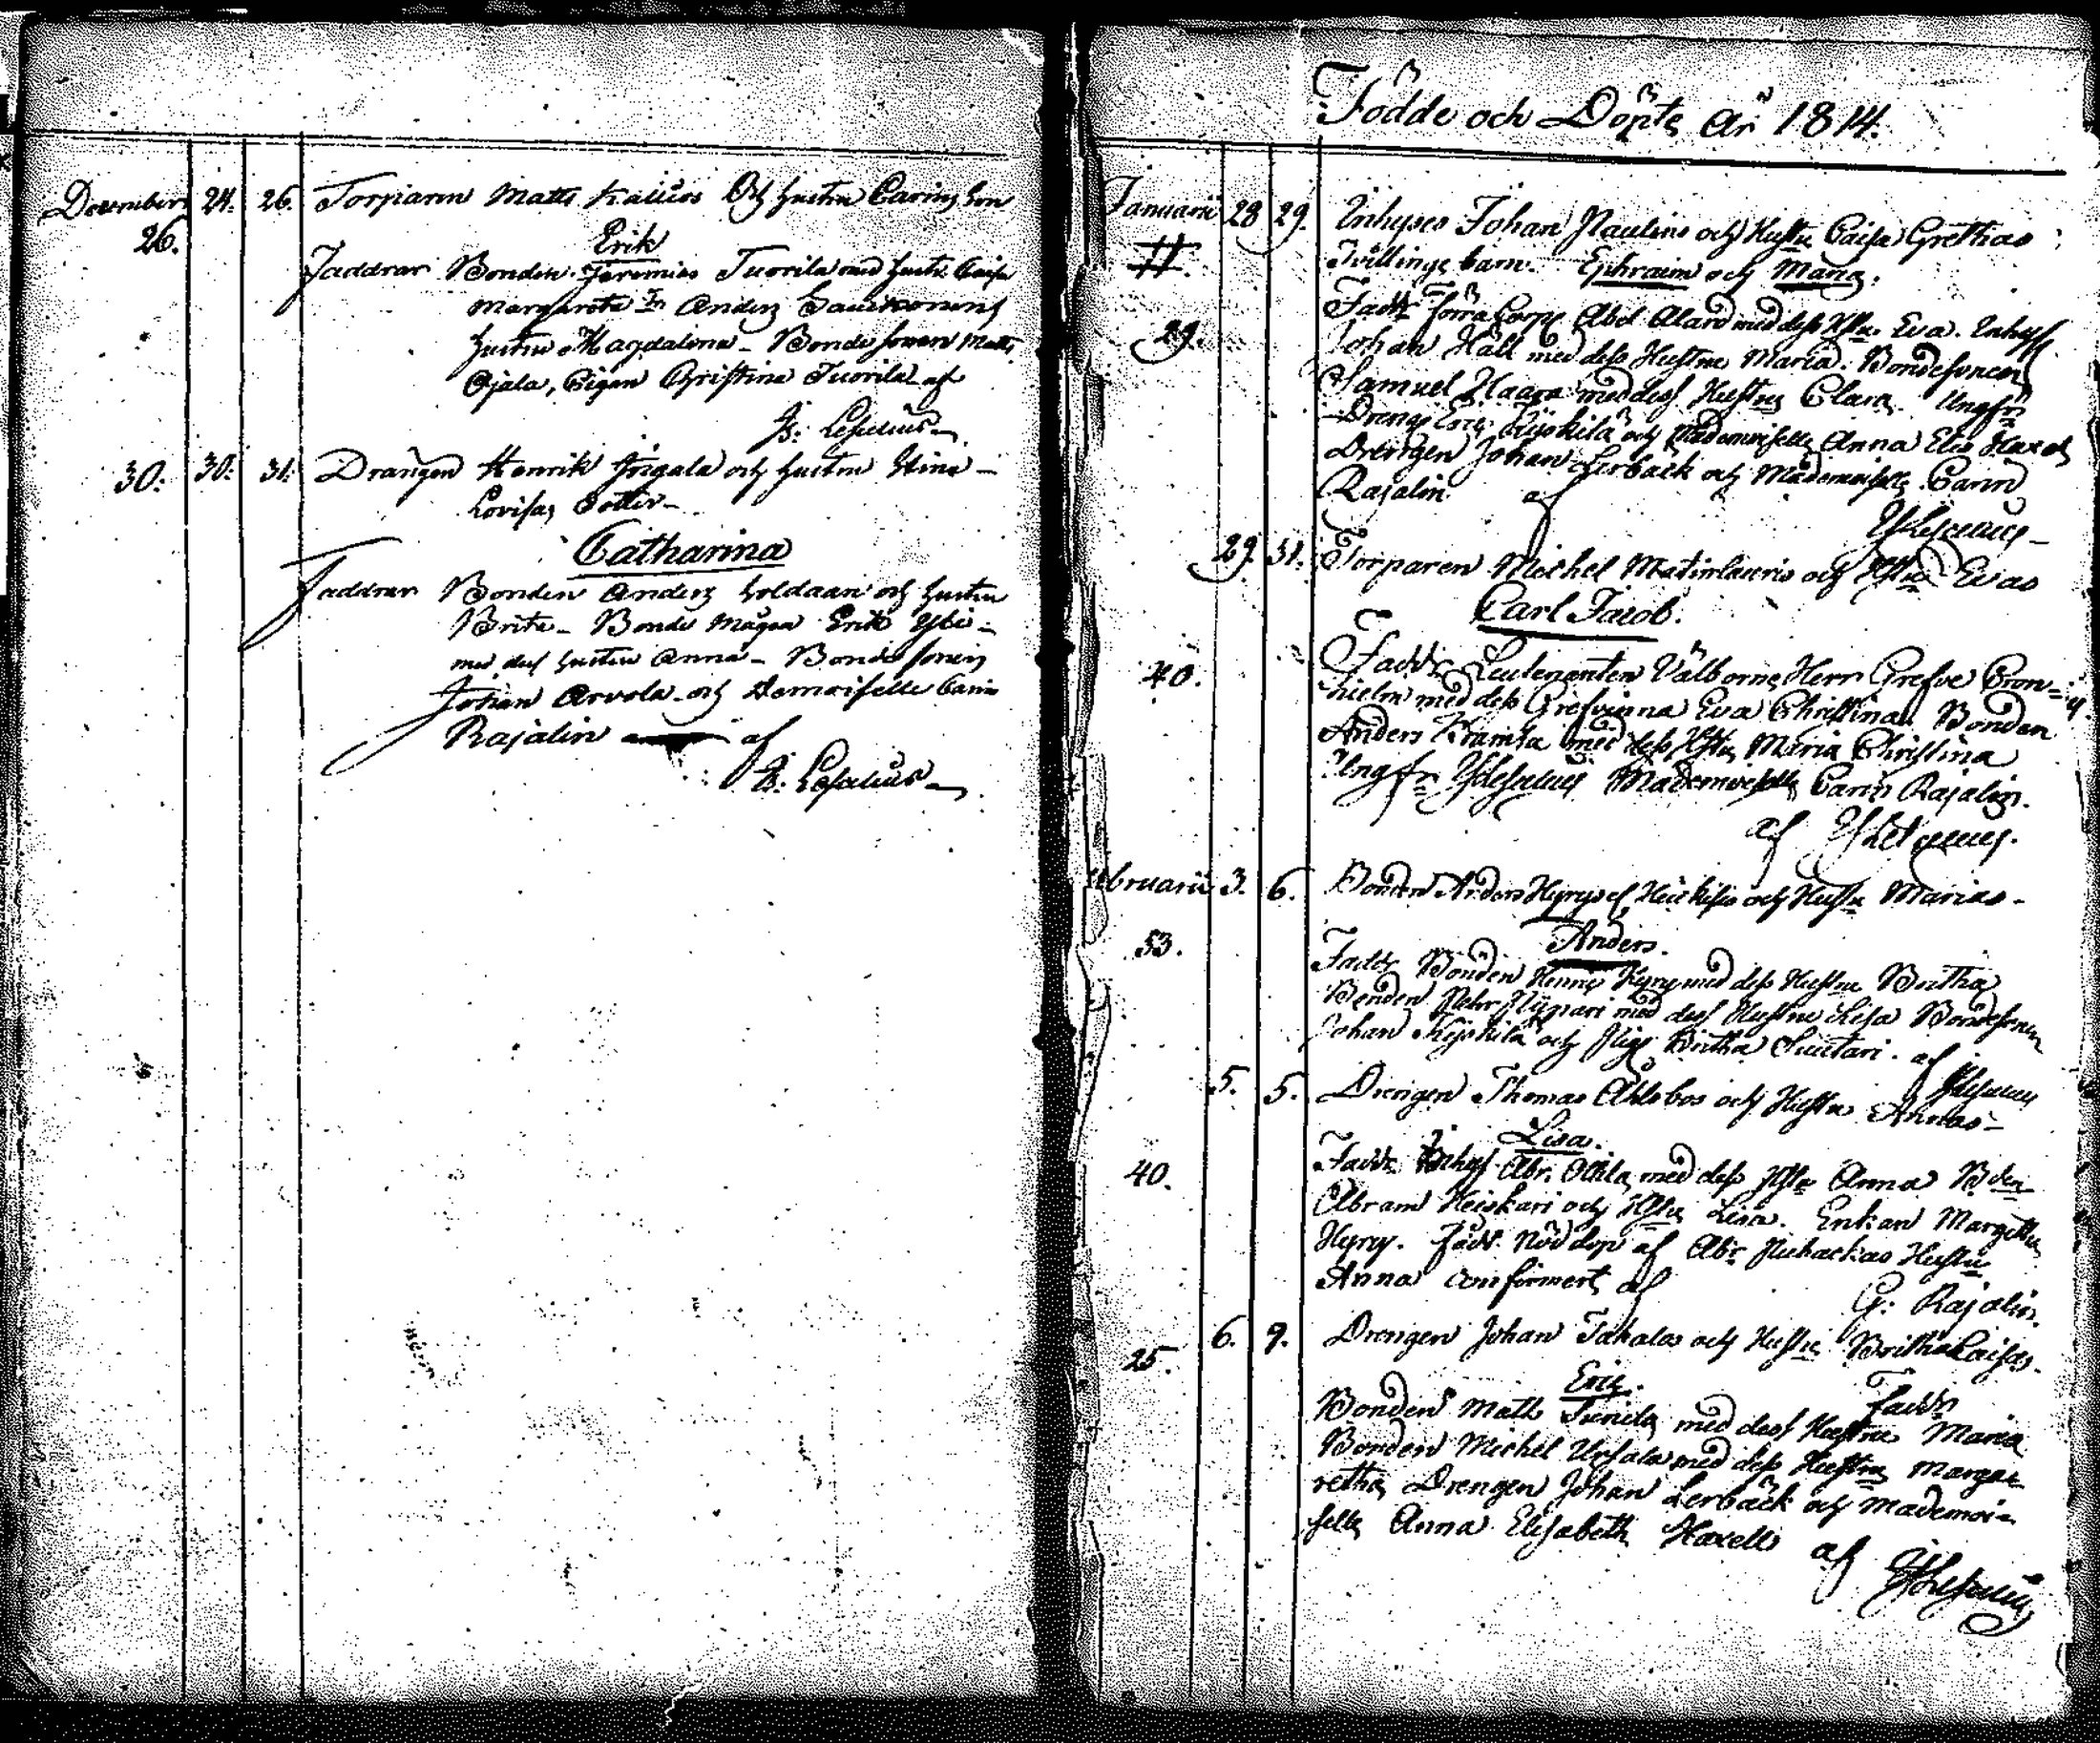 December 24. 26. Torparen Matts Kallios Och hustru Carins son
26.
Erik
Faddrar Bonden Jeremias Tuorila med hustr. Caisa
Margareta Anders
hustru Magdalena - Bonde sonen Matts
Ojala, Pigan Christina Tuorila af
30. 30. 31. Drängen Henrik och hustru Stina -
Lovisas Dotter -
Catharina
Faddrar Bonden Anders Soldaan och hustru
Brita - Bonde Mågen Erik
med dess hustru Anna - Bonde sonen
Johan Arvola och Demoiselle Carin
Rajalin af
Födde och Döpte År 1814.
Januarii 28 29. Inhyses Johan och Hustru Caisa Grethas
Tvillinge barn. Ephraim och Maria.
Abel Alard med dess Hstu. Eva. Inhyses
29.
Johan Häll med dess Hustru Maria. Bondesonen
Samuel Haara med dess Hustru Clara. Ungfr.
Dreng Eric Kijskilä och Mademoiselle Anna Elis Haxell
Drengen Johan Lerbäck och Mademoiselle Carin
Rajalin af
29. 31. Torparen Michel och Hstu Evas
Carl Jacob.
Faddr. Leutenanten Välborne Herr Grefve Cron-
40.
hielm med dess Grefvinna Eva Christina. Bonden
Anders Kramsu med dess Hstu Maria Christina
Ungfr. Mademoiselle Carin Rajalin.
af
bruarii 3. 6. Bonden Anders Hyrys och Hustru Marias -
Anders.
53.
Faddr Bonden Hyry med dess Hustru Britha
Bonden Pehr med dess Hustru Lisa Bondesonen
Johan Kijskilä och Pig. Britha Suutari. af
5. 5. Drengen Thomas Ahlsbos och Hustru Annas -
Lisa.
Faddr Inhys Abr. med dess Hstu Anna Bden
40.
Abram Heiskari och Hstu Lisa. Enkan Margetha
Hyry. Nöddop af Abr. Hustru
Anna confirmert af
G: Rajalin.
6. 9. Drengen Johan Takalas och Hustru Britha Caisas.
25.
Eric. Faddr
Bonden Matts med dess Hustru Maria
Bonden Michel med dess Hustru Marga-
retha, Drengen Johan Lerbäck och Mademoi-
selle Anna Elisabeth Haxell af